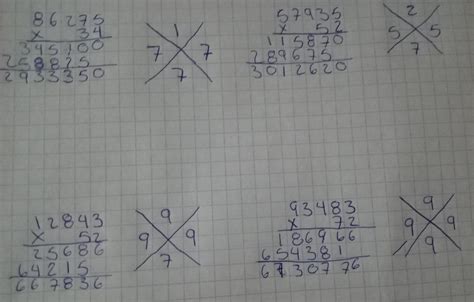 86275
x 34
345100
258825
2933350
1
7 7
7
57935
x 52
115870
289675
3012620
2
5 5
7
12843
x 52
25686
64215
667836
9
9 9
7
93483
x 72
186966
654381
6730776
9
9 9
9